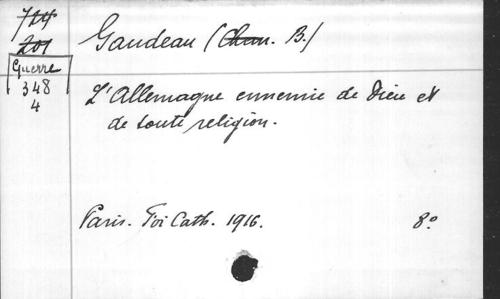 724
201
Guerre
348
4
Gaudeau (Chan. B.)
L'Allemagne ennemie de Dieu et
de toute religion.
Paris. Foi Cath. 1916. 8°